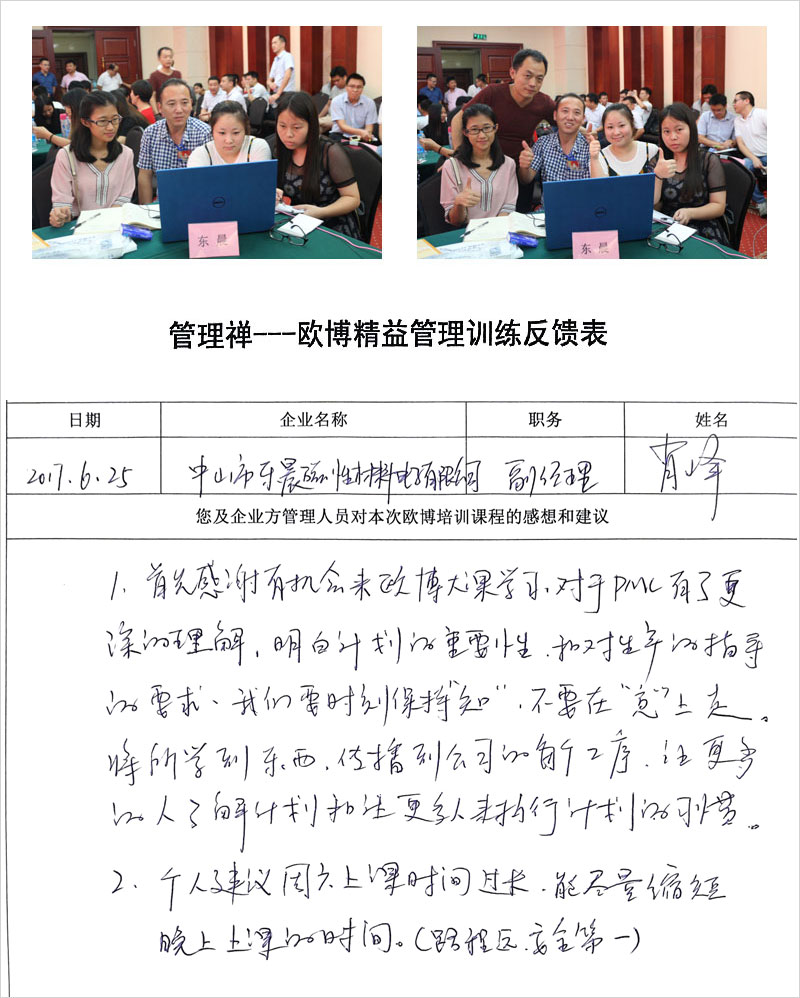 东晨
东晨
管理禅---欧博精益管理训练反馈表
日期 企业名称 职务 姓名
2017.6.25 中山市东晨磁性材料电子有限公司 副经理 肖峰
您及企业方管理人员对本次欧博培训课程的感想和建议
1、首先感谢有机会来欧博大课学习、对于PMC有了更
深的理解，明白计划的重要性、和对生产的指导
的要求、我们要时刻保持“知”，不要在“意”上走。
将所学到东西，传播到公司的每个工序，让更多
的人了解计划和让更多人来执行计划的习惯。
2、个人建议周六上课时间过长，能尽量缩短
晚上上课的时间。（路程远，安全第一）